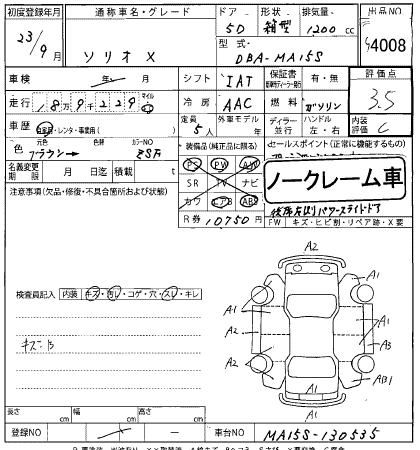 初度登録年月 通称車名・グレード ドア 形状 排気量 出品NO
23/9月 ソリオ X 5D 箱型 1200cc
型式 DBA-MA15S
4008
車検 年 月 シフト IAT 保証書 有・無 評価点
走行 18万9千229 マイル 冷房 AAC 燃料 ガソリン 3.5
車歴 自家用・レンタ・事業用( ) 定員 5人 外車モデル 年 ディーラー 並行 ハンドル 左・右 内装評価 C
色 元色 ブラウン → 色替 カラーNO ZSF 装備品(純正品に限る) セールスポイント(正常に機能するもの)
名義変更期限 月 日迄 積載 t PS PW AW
ノークレーム車
注意事項(欠品・修復・不具合箇所および状態) SR TV ナビ
カワ エアB ABS
R券 10750円
後席左右パワースライドドア
FW キズ・ヒビ割・リペア跡・X要
検査員記入 内装 キズ・汚レ・コゲ・穴・スレ・キレ
A2 A1 A1
A1 A2 A1 A3
A2 A1 AB1
A2
長さ cm 幅 cm 高さ cm
登録NO 車台NO MA15S-130535